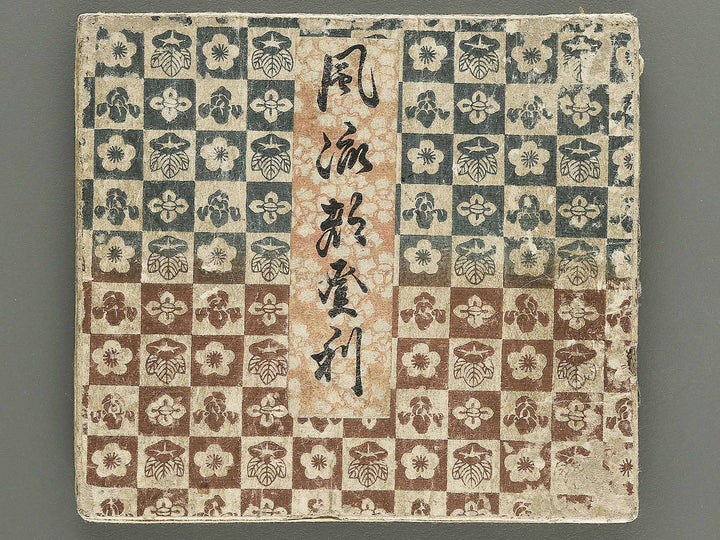 風流都登利